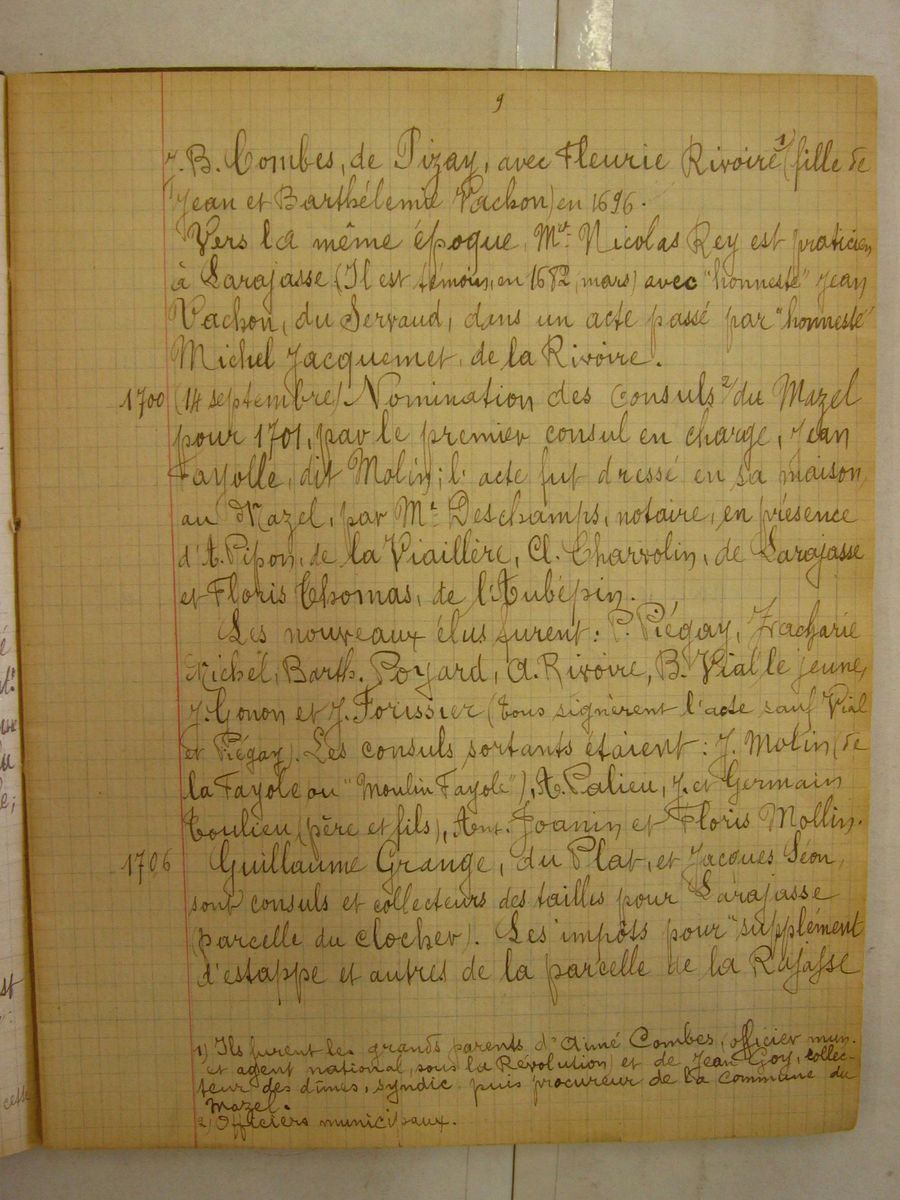 9
J. B. Combes, de Pizay, avec Fleurie Rivoire 1) (fille de
Jean et Barthélemie Vachon) en 1696.
Vers la même époque, Mre Nicolas Rey est praticien
à Larajasse (Il est témoin, en 1682, mars) avec "honneste" Jean
Vachon, du Servaud, dans un acte passé par "honneste"
Michel Jacquemet, de la Rivoire.
1700 (14 septembre) Nomination des Consuls 2) du Mazel
pour 1701, par le premier consul en charge, Jean
Fayolle, dit Molin; l'acte fut dressé en sa maison,
au Mazel, par Me Deschamps, notaire, en présence
d'A. Pipon, de la Viaillère, Cl. Charvolin, de Larajasse
et Floris Thomas, de l'Aubépin.
Les nouveaux élus furent: P. Piégay, Zacharie
Michel, Barth. Poyard, A. Rivoire, B. Vial le jeune,
J. Gonon et J. Forissier (tous signèrent l'acte sauf Vial
et Piégay). Les consuls sortants étaient: J. Molin (de
la Fayole ou "Moulin Fayole"), A. Palieu, J. et Germain
Toulieu (père et fils), Ant. Joanin et Floris Mollin.
1706 Guillaume Grange, du Plat, et Jacques Séon,
sont consuls et collecteurs des tailles pour Larajasse
(parcelle du clocher). Les impôts pour "supplément
d'estappe et autres de la parcelle de la Rajasse
1) Ils furent les grands parents d'Aimé Combes, (officier mun.
et agent national, sous la Révolution) et de Jean Goy, collec-
teur des dîmes, syndic puis procureur de la commune du
Mazel.
2) Officiers municipaux.